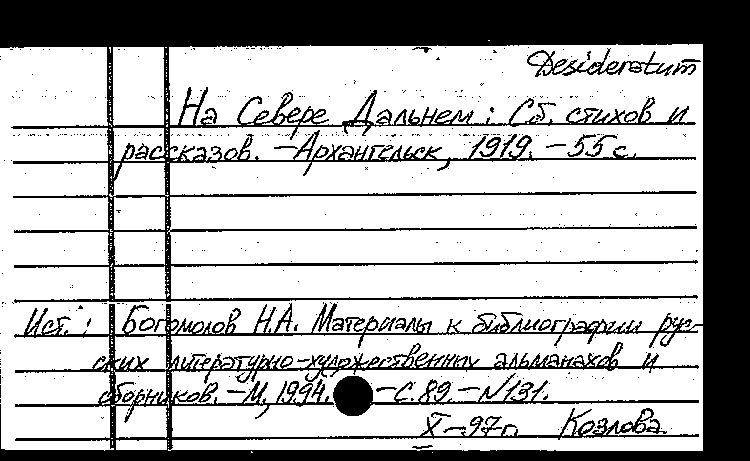 Desideratum
На Севере Дальнем: Сб. стихов и
рассказов. — Архангельск, 1919. — 55 с.
Ист.: Богомолов Н.А. Материалы к библиографии рус-
ских литературно-художественных альманахов и
сборников. — М., 1994. — С. 89. — N 131.
X — 97 г. Козлова.